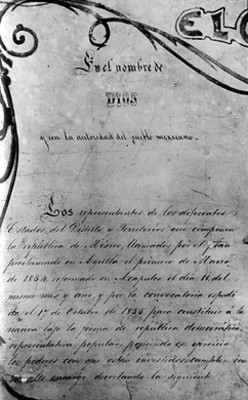 En el nombre de
DIOS
y con la autoridad del pueblo mexicano.
Los representantes de los diferentes
Estados, del Distrito y Territorios que componen
la República de México, llamados por el Plan
proclamado en Ayutla el primero de Marzo
de 1854, reformado en Acapulco el día 11 del
mismo mes y año, y por la convocatoria expedi
da el 17 de Octubre de 1855, para constituir á la
nacion bajo la forma de república democrática,
representativa, popular, poniendo en ejercicio
los poderes con que están investidos, cumplen con
su alto encargo decretando la siguiente